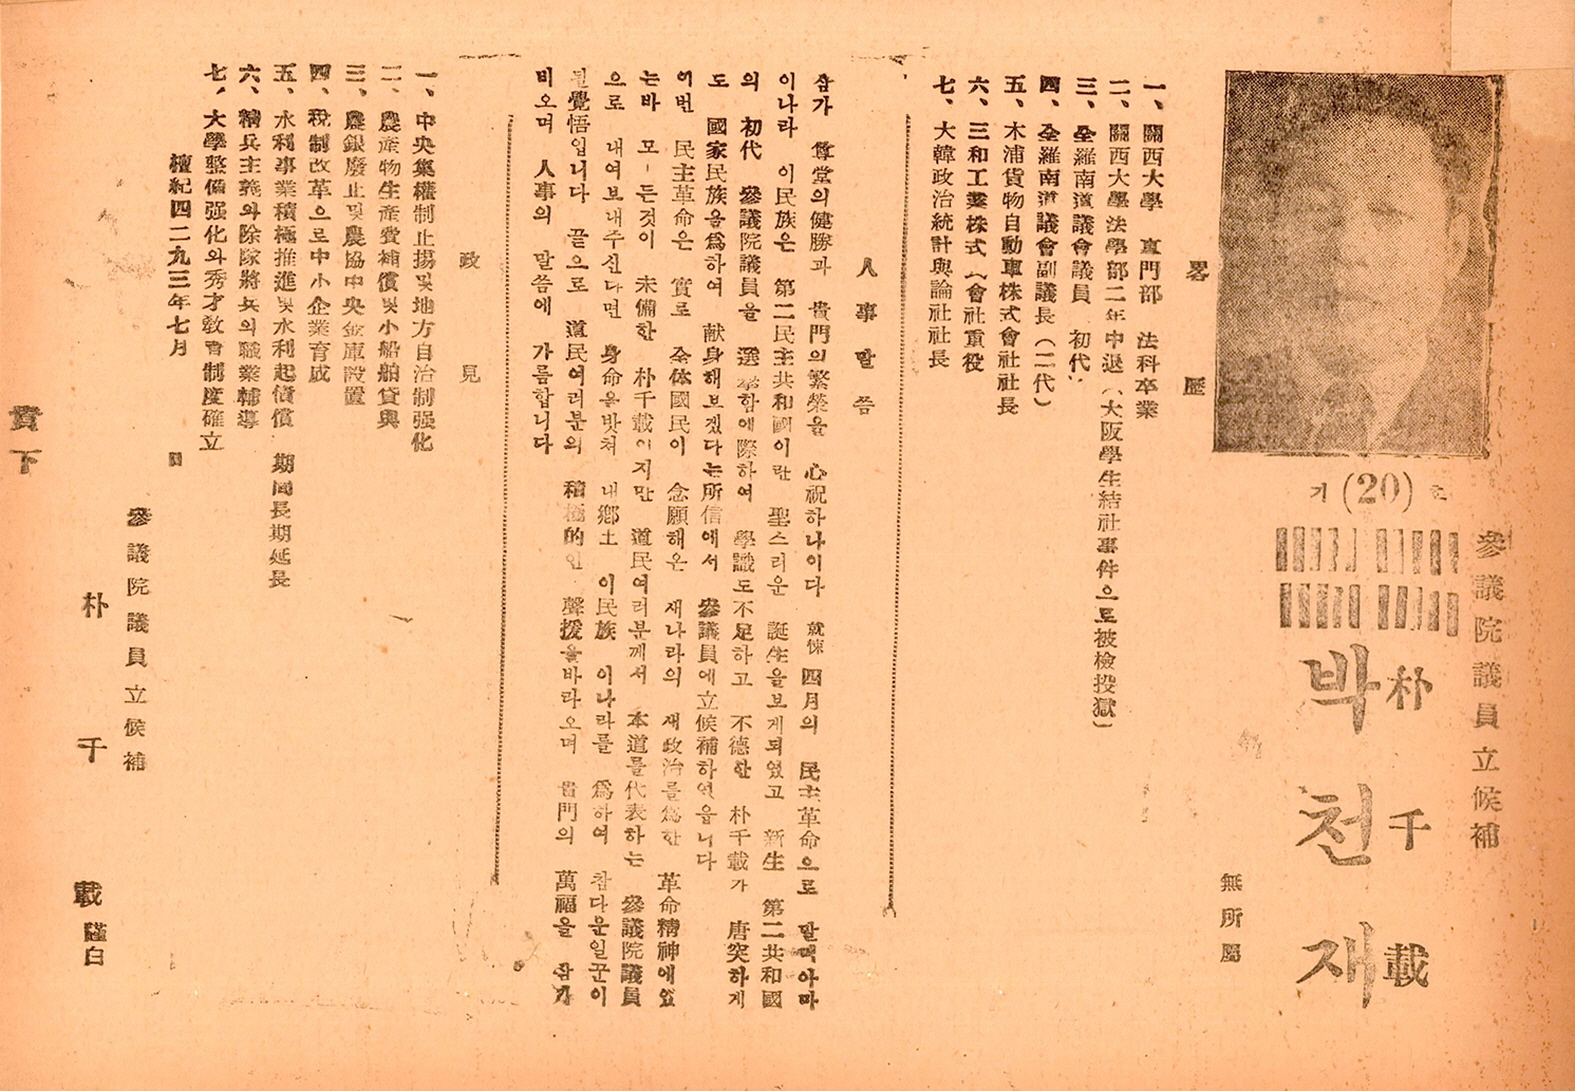 參議院議員立候補
기 (20) 호
朴千載
박천재
無所屬
畧歷
一、關西大學 專門部 法科卒業
二、關西大學法學部二年中退 (大阪學生結社事件으로被檢投獄)
三、全羅南道議會議員 初代
四、全羅南道議會副議長 (二代)
五、木浦貨物自動車株式會社社長
六、三和工業株式 (會社重役
七、大韓政治統計與論社社長
人事말씀
삼가 尊堂의健勝과 貴門의繁榮을 心祝하나이다 就悚 四月의 民主革命으로 말미아마
이나라 이民族은 第二民主共和國이란 聖스러운 誕生을보게되였고 新生 第二共和國
의 初代 參議院議員을 選擧함에際하여 學識도不足하고 不德한 朴千載가 唐突하게
도 國家民族을爲하여 献身해보겠다는所信에서 參議員에立候補하였읍니다
이번 民主革命은 實로 全体國民이 念願해온 새나라의 새政治를爲한 革命精神에있
는바 모-든것이 未備한 朴千載이지만 道民여러분께서 本道를代表하는 參議院議員
으로 내여보내주신다면 身命을밧쳐 내鄕土 이民族 이나라를 爲하여 참다운일꾼이
될覺悟입니다 끝으로 道民여러분의 積極的인 聲援을바라오며 貴門의 萬福을 삼가
비오며 人事의 말씀에 가름합니다
政見
一、中央集權制止揚및地方自治制强化
二、農産物生産費補償및小船舶貸與
三、農銀廢止및農協中央金庫設置
四、稅制改革으로中小企業育成
五、水利事業積極推進및水利起債償 期間長期延長
六、精兵主義와除隊將兵의職業輔導
七、大學整備强化와秀才敎育制度確立
檀紀四二九三年七月 日
參議院議員立候補
朴千載 謹白
貴下